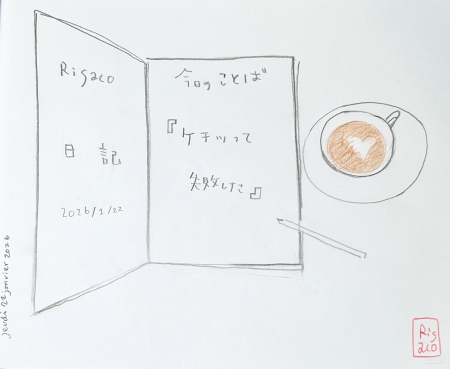 Rigaco
日記
2026/1/22
今日のことば
『ケチって
失敗した』
jeudi 22 janvier 2026
Rig
aco